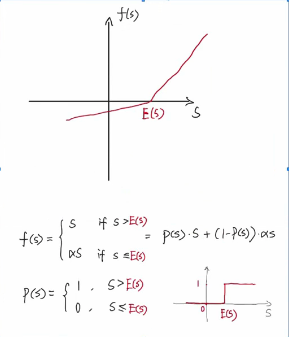 f(s)
S
E(s)
f(s) = { S if s > E(s)
αS if s ≤ E(s)
= p(s) · S + (1-p(s)) · αs
p(s) = { 1 , S > E(s)
0 , S ≤ E(s)
1
0
E(s)
S